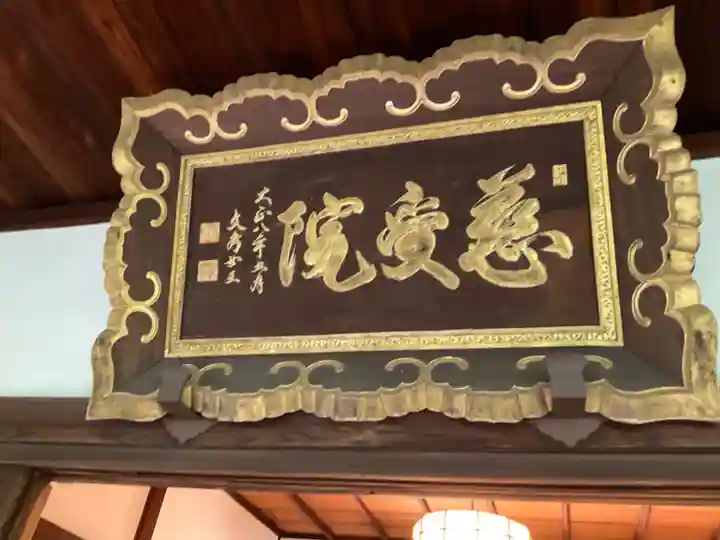 慈受院
大正八年五月
文秀女王